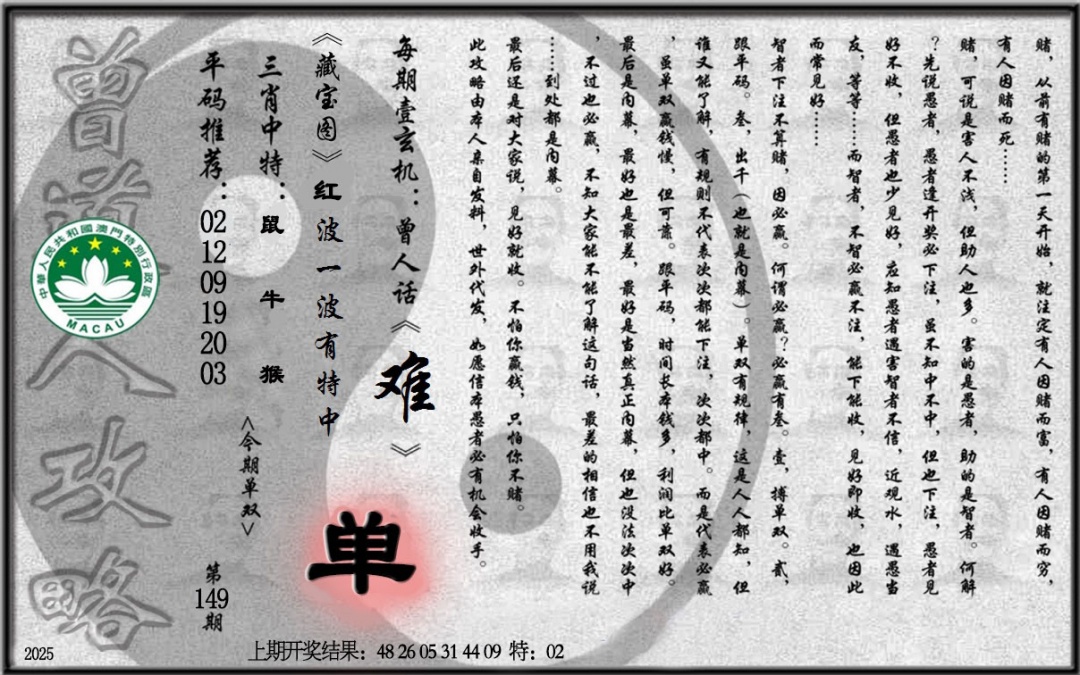 赌，从前有赌的第一天开始，就注定有人因赌而富，有人因赌而穷，
有人因赌而死……
赌，可说是害人不浅，但助人也多。害的是愚者，助的是智者。何解
？先说愚者，愚者逢开奖必下注，虽不知中不中，但也下注，愚者见
好不收，但愚者也少见好，应知愚者遇害智者不信，近观水，遇愚当
友，等等……而智者，不智必赢不注，能下能收，见好即收，也因此
而常见好……
智者下注不算赌，因必赢。何谓必赢？必赢有叁。壹，搏单双。贰，
跟平码。叁，出千（也就是内幕）。单双有规律，这是人人都知，但
谁又能了解，有规则不代表次次都能下注，次次都中。而是代表必赢
，虽单双赢钱慢，但可靠。跟平码，时间长本钱多，利润比单双好。
最后是内幕，最好也是最差，最好是当然真正内幕，但也没法次次中
，不过也必赢，不知大家能不能了解这句话，最差的相信也不用我说
……到处都是内幕。
最后还是对大家说，见好就收。不怕你赢钱，只怕你不赌。
此攻略由本人亲自发料，世外代发，如愿信本愚者必有机会收手。
每期壹玄机：曾人话《难》
《藏宝图》红波一波有特中
三肖中特：鼠 牛 猴
平码推荐：02 12 09 19 20 03
<今期单双>
单
第149期
曾道人攻略
中華人民共和國澳門特別行政區
MACAU
2025
上期开奖结果：48 26 05 31 44 09 特：02